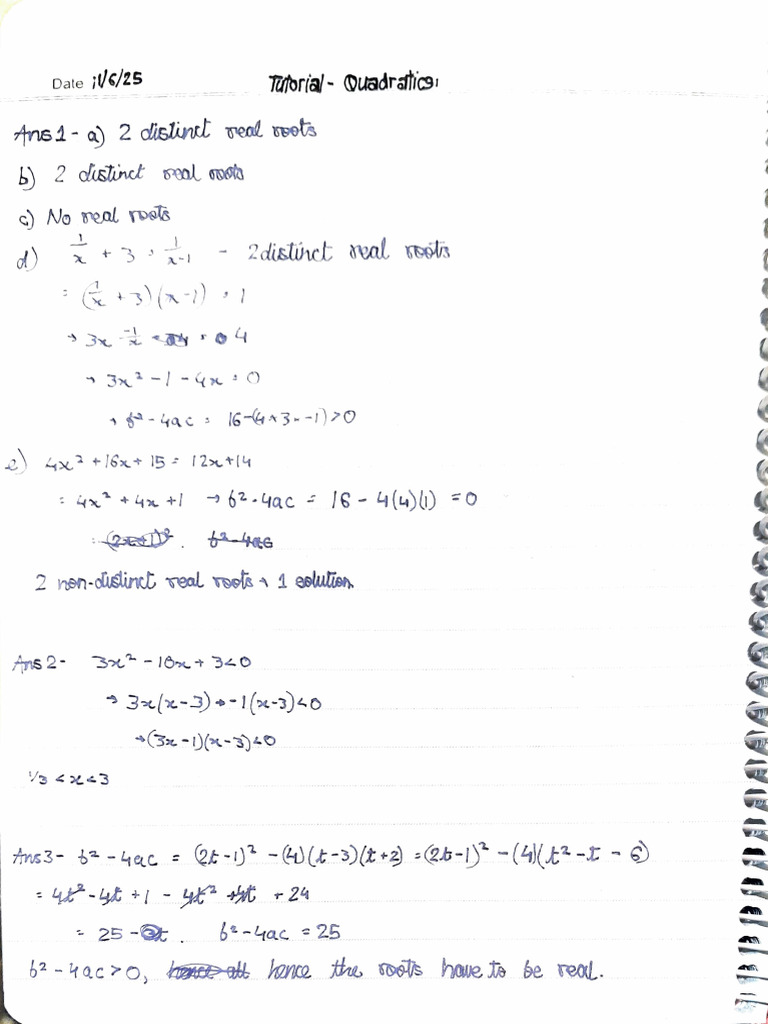 Date 11/6/25 Tutorial - Quadratics:
Ans 1 - a) 2 distinct real roots
b) 2 distinct real roots
c) No real roots
d) 1/x + 3 = 1/x-1 - 2 distinct real roots
= (1/x + 3)(x-1) = 1
→ 3x - 1/x = 4
→ 3x² - 1 - 4x = 0
→ b² - 4ac = 16-(4×3×-1)>0
e) 4x² + 16x + 15 = 12x+14
= 4x² + 4x + 1 → b² - 4ac = 16 - 4(4)(1) = 0
= (2x+1)². b² - 4ac
2 non-distinct real roots → 1 solution.
Ans 2 - 3x² - 10x + 3 < 0
→ 3x(x-3) -1(x-3) < 0
→ (3x-1)(x-3) < 0
1/3 < x < 3
Ans 3 - b² - 4ac = (2t-1)² - (4)(t-3)(t+2) = (2t-1)² - (4)(t² - t - 6)
= 4t² - 4t + 1 - 4t² + 4t + 24
= 25 . b² - 4ac = 25
b² - 4ac > 0, hence all hence the roots have to be real.